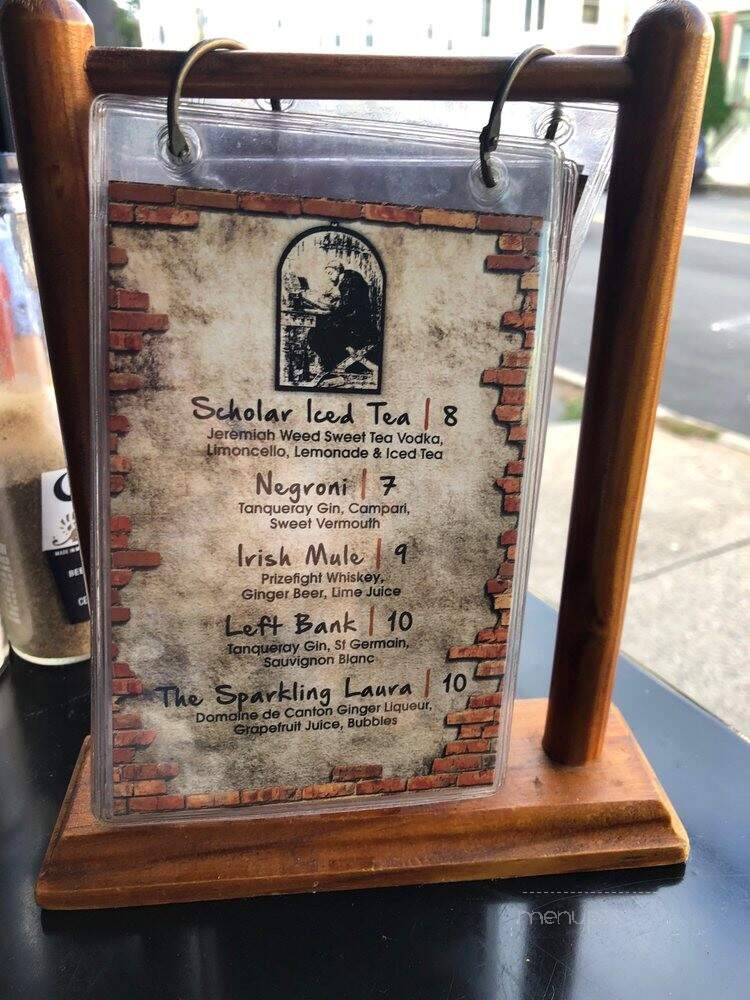 Scholar Iced Tea | 8
Jeremiah Weed Sweet Tea Vodka,
Limoncello, Lemonade & Iced Tea
Negroni | 7
Tanqueray Gin, Campari,
Sweet Vermouth
Irish Mule | 9
Prizefight Whiskey,
Ginger Beer, Lime Juice
Left Bank | 10
Tanqueray Gin, St Germain,
Sauvignon Blanc
The Sparkling Laura | 10
Domaine de Canton Ginger Liqueur,
Grapefruit Juice, Bubbles